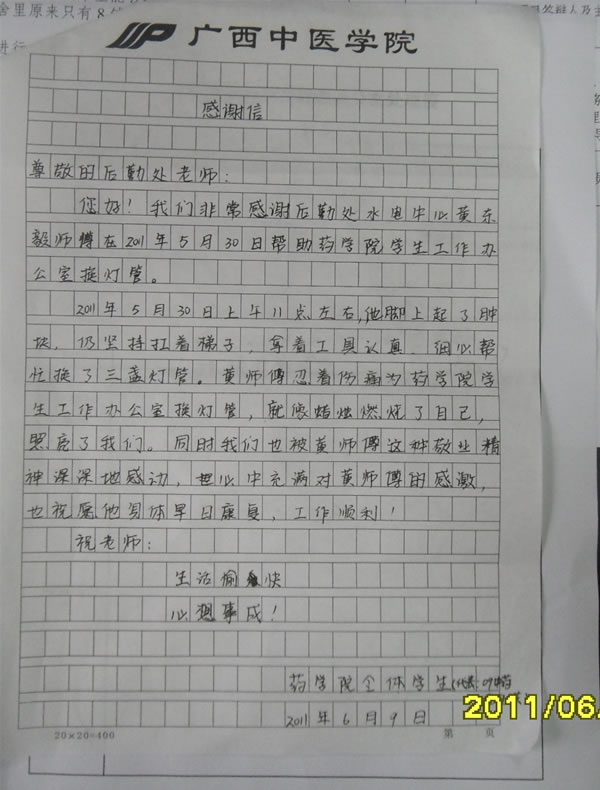 舍里原来只有8
进行
广西中医学院
感谢信
尊敬的后勤处老师：
您好！我们非常感谢后勤处水电中心黄东
毅师傅在2011年5月30日帮助药学院学生工作办
公室换灯管。
2011年5月30日上午11点左右,他脚上起了肿
块，仍坚持扛着梯子，拿着工具认真、细心帮
忙换了三盏灯管。黄师傅忍着伤痛为药学院学
生工作办公室换灯管，就像蜡烛燃烧了自己，
照亮了我们。同时我们也被黄师傅这种敬业精
神深深地感动，心中充满对黄师傅的感激，
也祝愿他身体早日康复，工作顺利！
祝老师：
生活愉快
心想事成！
药学院全体学生
2011年6月9日
20×20=400
第 页
2011/06